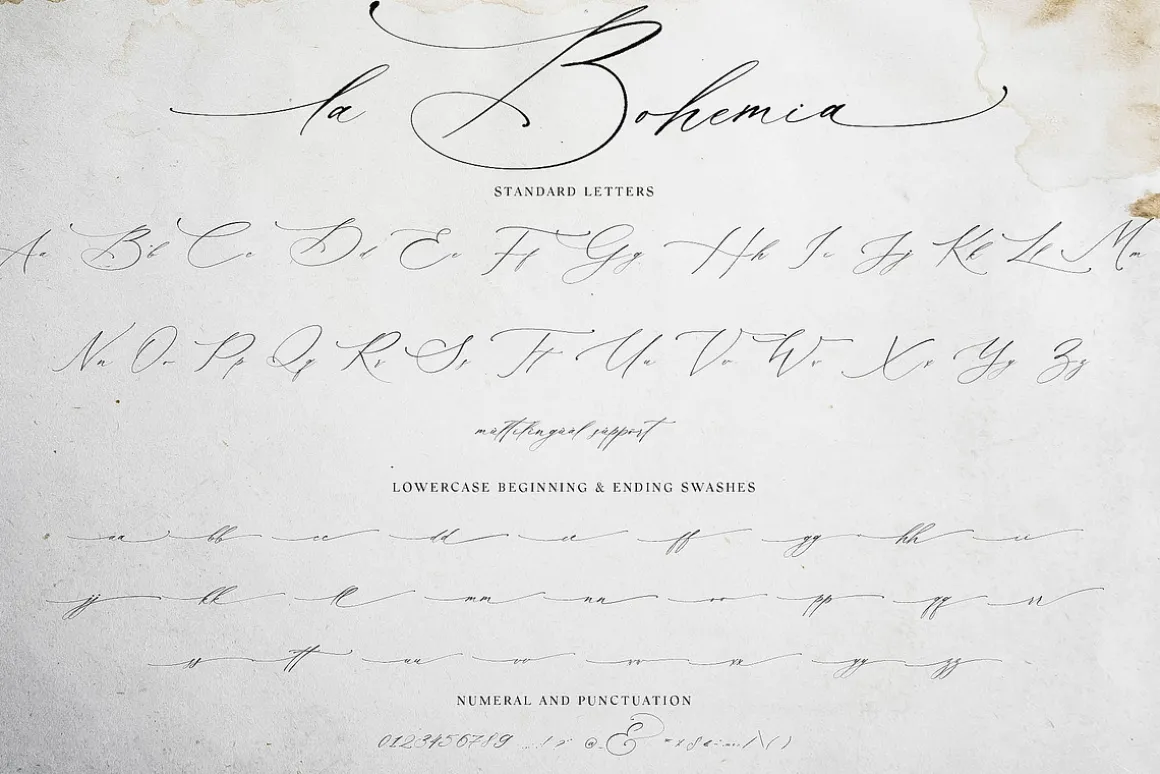 la Bohemia
STANDARD LETTERS
Aa Bb Cc Dd Ee Ff Gg Hh Ii Jj Kk Ll Mm
Nn Oo Pp Qq Rr Ss Tt Uu Vv Ww Xx Yy Zz
multilingual support
LOWERCASE BEGINNING & ENDING SWASHES
aa bb cc dd ee ff gg hh ii
jj kk ll mm nn oo pp qq rr
ss tt uu vv ww xx yy zz
NUMERAL AND PUNCTUATION
0123456789 @ &